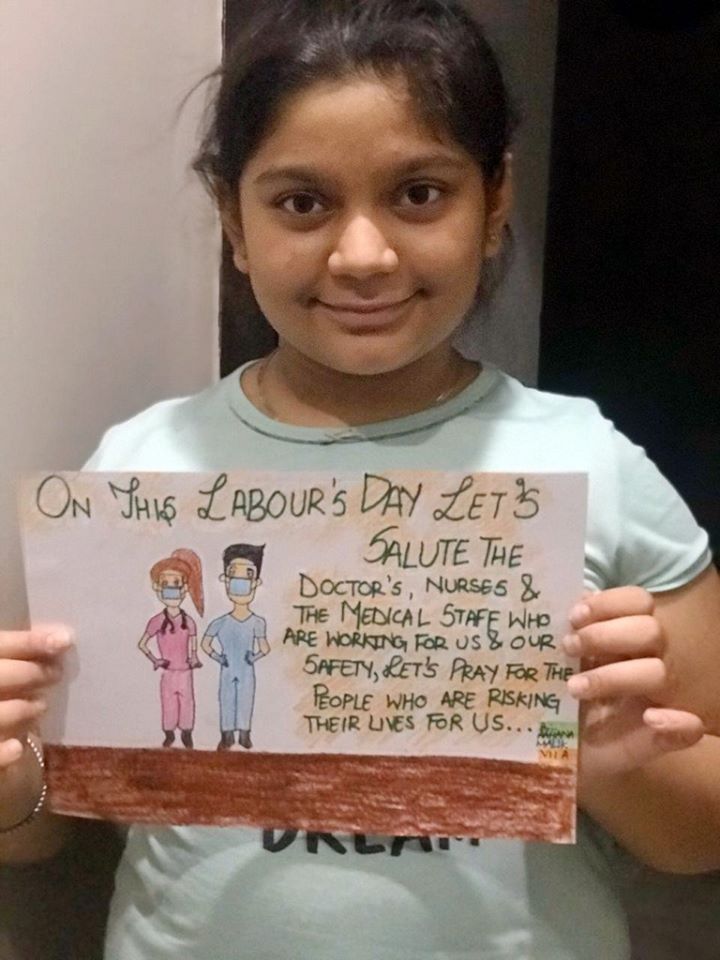 ON THIS LABOUR'S DAY LET'S
SALUTE THE
DOCTOR'S, NURSES &
THE MEDICAL STAFF WHO
ARE WORKING FOR US & OUR
SAFETY, LET'S PRAY FOR THE
PEOPLE WHO ARE RISKING
THEIR LIVES FOR US...
MALIK
VII A
DREAM